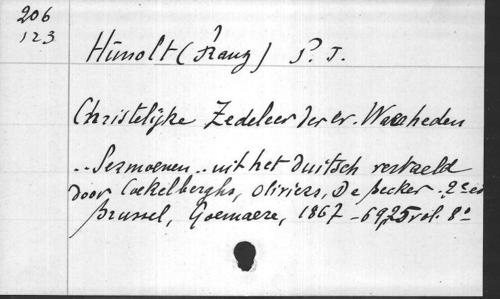 206
123
Hunolt (Franz) S. J.
Christelijke Zedeleer der ev. Waerheden
.. Sermoenen .. uit het duitsch vertaeld
door Cockelberghs, Oliviers, De Becker. 2e ed
Brussel, Goemaere, 1867-69, 25 vol. 8°